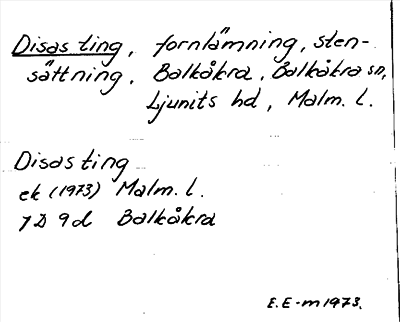 Disas ting, fornlämning, sten-
sättning, Balkåkra, Balkåkra sn,
Ljunits hd, Malm. l.
Disas ting
ek (1973) Malm. l.
1D 9d Balkåkra
E.E-m 1973.